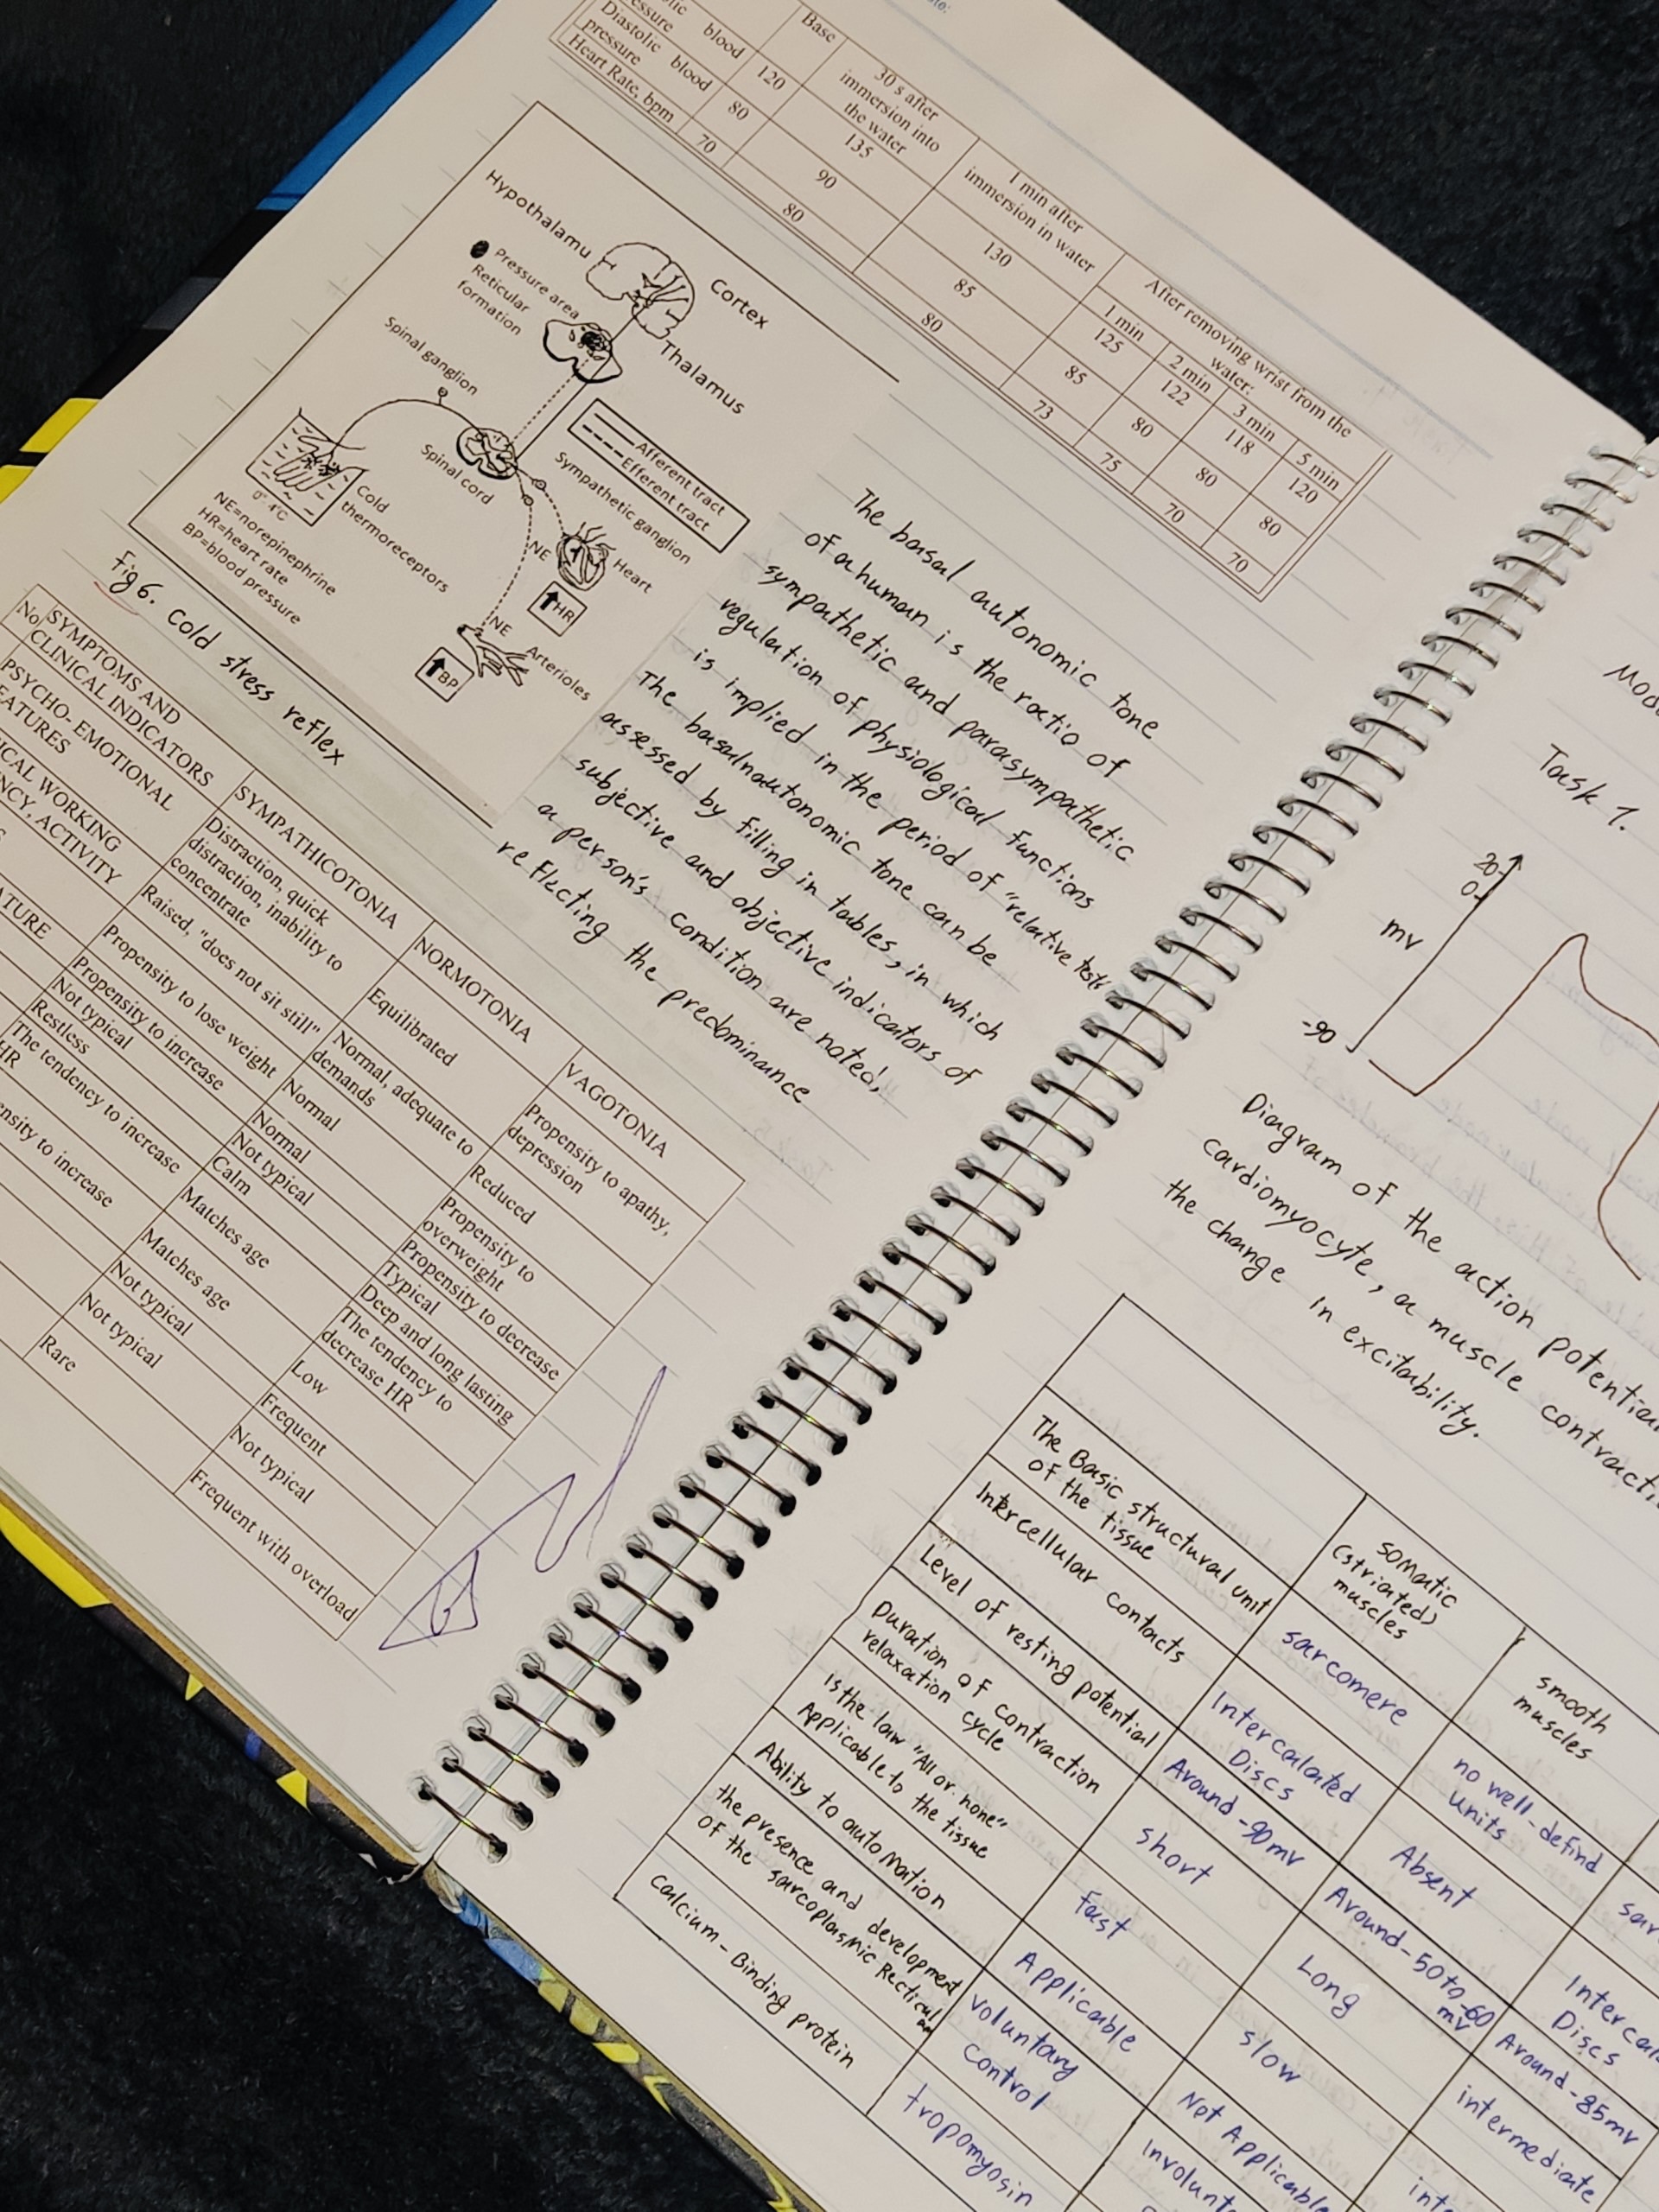 Base
30 s after
immersion into
the water
1 min after
immersion in water
After removing wrist from the
water:
1 min
2 min
3 min
5 min
blood
120
135
130
125
122
118
120
Diastolic blood
pressure
80
90
85
85
80
80
80
Heart Rate, bpm
70
80
80
73
75
70
70
Hypothalamu
Cortex
Pressure area
Reticular
formation
Thalamus
Spinal ganglion
Afferent tract
Efferent tract
Spinal cord
Sympathetic ganglion
Cold
thermoreceptors
0°-4°C
NE
Heart
HR
NE
Arterioles
BP
NE=norepinephrine
HR=heart rate
BP=blood pressure
Fig 6. Cold stress reflex
The basal autonomic tone
of a human is the ratio of
sympathetic and parasympathetic
regulation of physiological functions
is implied in the period of "relative
The basal autonomic tone can be
assessed by filling in tables, in which
subjective and objective indicators of
a person's condition are noted,
reflecting the predominance
No
SYMPTOMS AND
CLINICAL INDICATORS
SYMPATHICOTONIA
NORMOTONIA
VAGOTONIA
PSYCHO- EMOTIONAL
Distraction, quick
distraction, inability to
concentrate
Equilibrated
Propensity to apathy,
depression
WORKING
ACTIVITY
Raised, "does not sit still"
Normal, adequate to
demands
Reduced
Propensity to lose weight
Normal
Propensity to
overweight
Propensity to increase
Normal
Propensity to decrease
Not typical
Not typical
Typical
Restless
Calm
Deep and long lasting
The tendency to increase
HR
Matches age
The tendency to
decrease HR
to increase
Matches age
Low
Not typical
Frequent
Not typical
Not typical
Rare
Frequent with overload
Task 1.
20
0
mv
-90
Diagram of the action
cardiomyocyte, a muscle
the change in excitability.
SOMATIC
(striated)
muscles
smooth
muscles
The Basic structural unit
of the tissue
sarcomere
no well-defind
units
Intercellular contacts
Intercalated
Discs
Absent
Discs
Level of resting potential
Around -90mv
Around -50 to -60
mv
Around -85mv
Duration of contraction
relaxation cycle
short
Long
intermediate
Fast
slow
Is the law "All or none"
Applicable to the tissue
Applicable
Not Applicable
Ability to automation
voluntary
control
the presence and development
of the sarcoplasmic
tropomyosin
Calcium-Binding protein